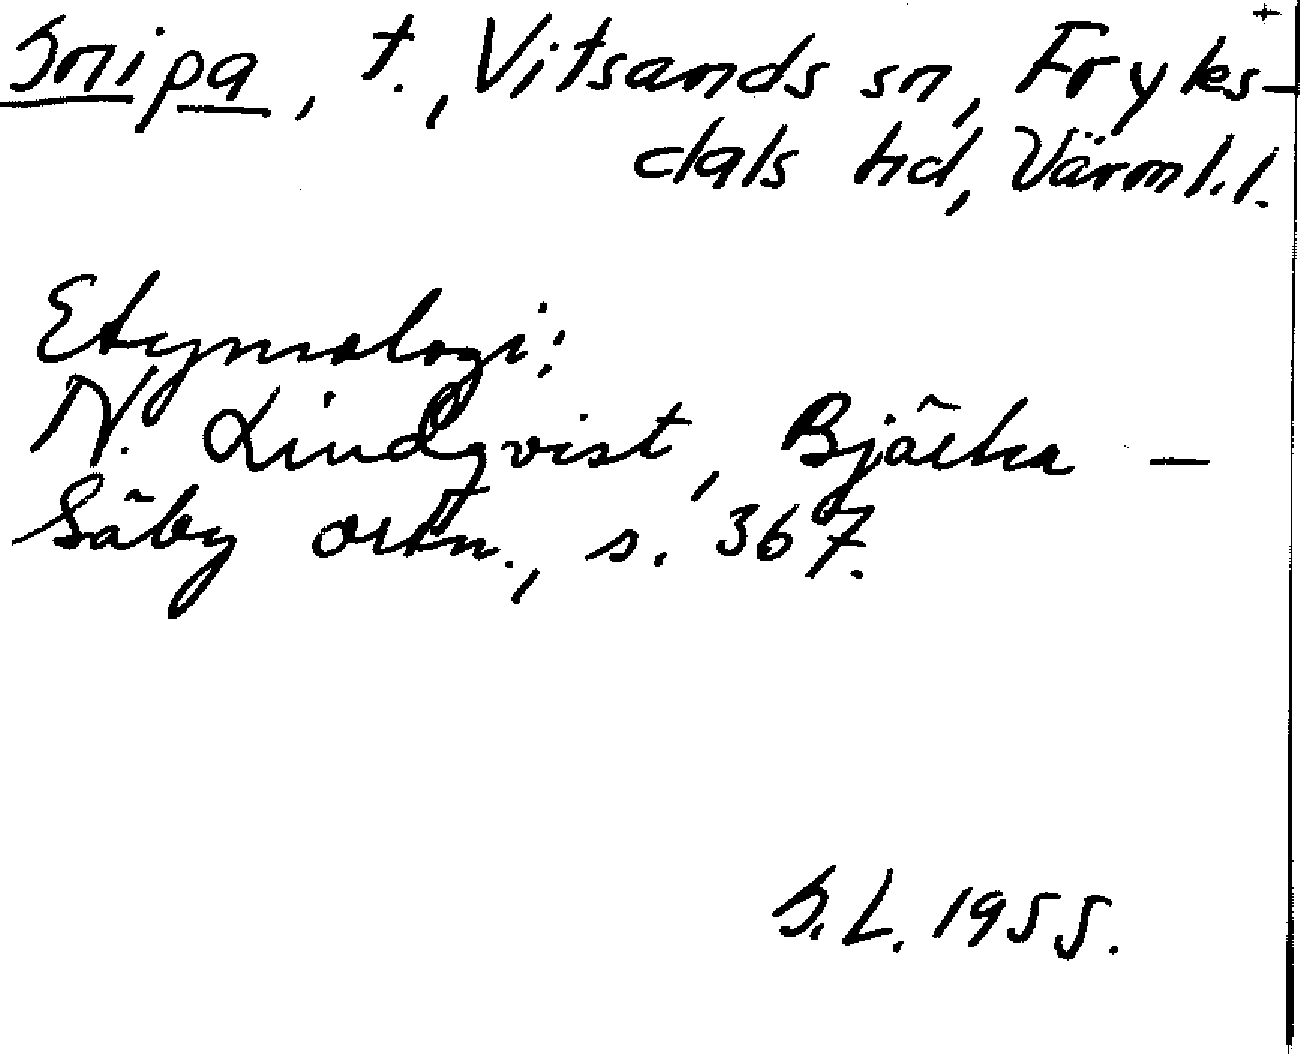 +
Snipa, t., Vitsands sn, Fryks-
dals hd, Värml. l.
Etymologi:
N. Lindqvist, Bjärka –
Säby ortn., s. 367.
S.L. 1955.